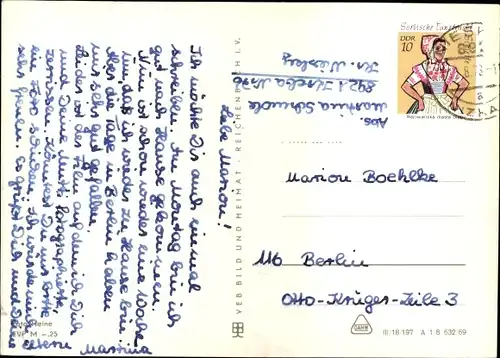 Liebe Marion!
Ich möchte Dir auch einmal
schreiben. Am Montag bin ich
gut nach Hause gekommen.
Nun ist schon wieder eine Woche
um, daß ich wieder zu Hause bin.
Aber die Tage in Berlin haben
mir sehr gut gefallen.
Leider ist der Film auf dem ich Dich
und Deine Mutti fotographierte,
zerrissen. Könntest Du uns bitte
ein Foto schicken. Ich würde mich
sehr freuen. Es grüßt Dich und Deine
Eltern Martina
Foto: Heine
EVP M -.25
VEB BILD UND HEIMAT REICHENBACH I. V.
Abs.
Martina
8921
Kr. Niesky
Sorbische Tanztracht
DDR
10
Marion Boehlke
116 Berlin
Otto-Krüger-Zeile 3
III/18.197 A 1 B 632/69